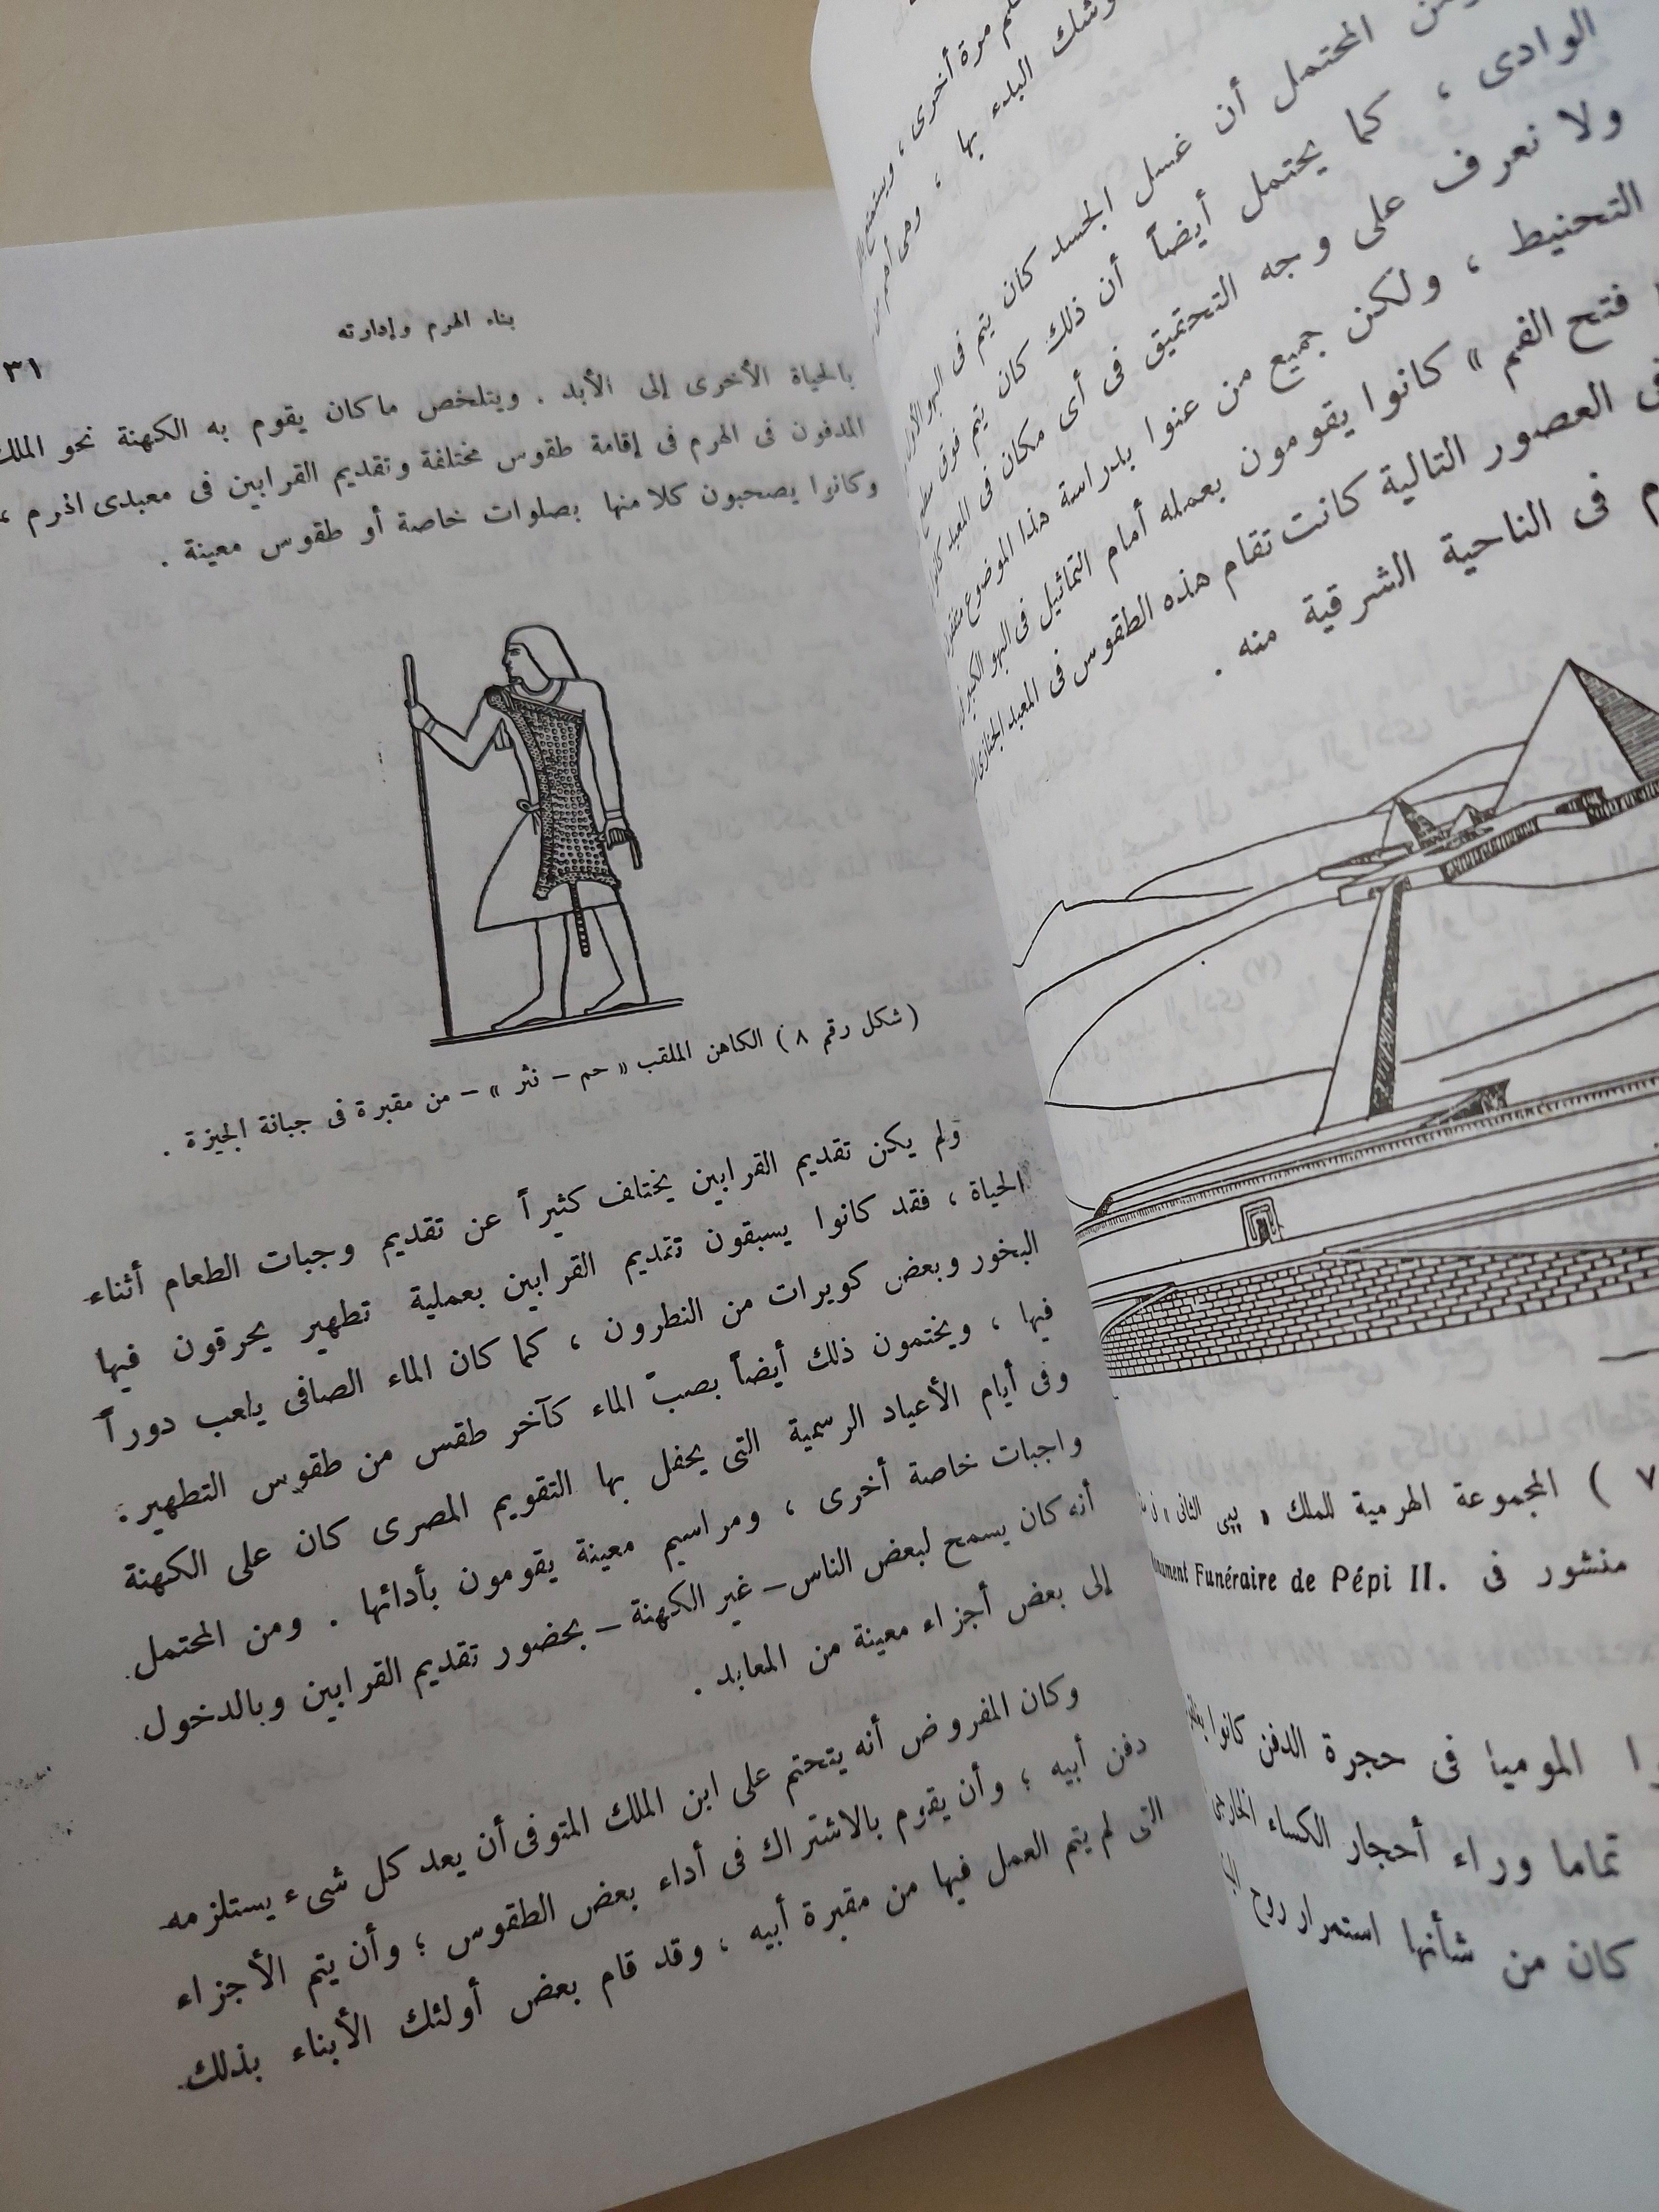 مرة أخرى ،
وشك البدء بها ،
المحتمل أن غسل الجسد كان يتم فى البهو
الوادى ، كما يحتمل أيضاً أن ذلك كان يتم فوق سطح
ولا نعرف على وجه التحقيق فى أى مكان فى المعبد كانوا
التحنيط ، ولكن جميع من عنوا بدراسة هذا الموضوع
فتح الفم » كانوا يقومون بعمله أمام التماثيل فى البهو الكبير
العصور التالية كانت تقام هذه الطقوس فى المعبد الجنازى
فى الناحية الشرقية منه .
٧ ) المجموعة الهرمية للملك « بيبى الثانى »
منشور فى Funéraire de Pépi II.
الموميا فى حجرة الدفن كانوا
تماما وراء أحجار الكساء الخارجى
كان من شأنها استمرار روح
بناء الهرم وإدارته
٣١
بالحياة الأخرى إلى الأبد . ويتلخص ماكان يقوم به الكهنة نحو الملك
المدفون فى الهرم فى إقامة طقوس مختلفة وتقديم القرابين فى معبدى اذرم ،
وكانوا يصحبون كلا منها بصلوات خاصة أو طقوس معينة .
( شكل رقم ٨ ) الكاهن الملقب « حم – نثر » – من مقبرة فى جبانة الجيزة .
ولم يكن تقديم القرابين يختلف كثيراً عن تقديم وجبات الطعام أثناء
الحياة ، فقد كانوا يسبقون تقديم القرابين بعملية تطهير يحرقون فيها
البخور وبعض كويرات من النطرون ، كما كان الماء الصافى يلعب دوراً
فيها ، ويختمون ذلك أيضاً بصبّ الماء كآخر طقس من طقوس التطهير .
وفى أيام الأعياد الرسمية التى يحفل بها التقويم المصرى كان على الكهنة
واجبات خاصة أخرى ، ومراسيم معينة يقومون بأدائها . ومن المحتمل
أنه كان يسمح لبعض الناس – غير الكهنة – بحضور تقديم القرابين وبالدخول
إلى بعض أجزاء معينة من المعابد .
وكان المفروض أنه يتحتم على ابن الملك المتوفى أن يعد كل شىء يستلزمه
دفن أبيه ؛ وأن يقوم بالاشتراك فى أداء بعض الطقوس ؛ وأن يتم الأجزاء
التى لم يتم العمل فيها من مقبرة أبيه ، وقد قام بعض أولئك الأبناء بذلك